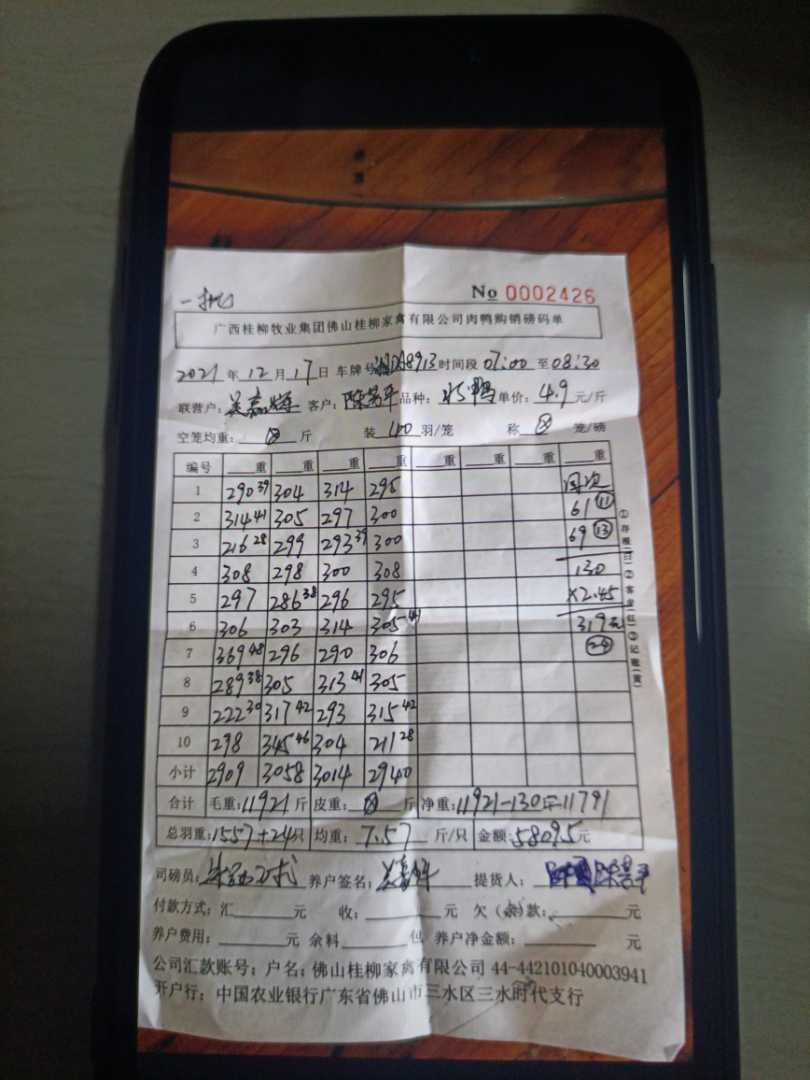 一批
No 0002426
广西桂柳牧业集团佛山桂柳家禽有限公司肉鸭购销磅码单
2021年12月17日 车牌号 DA8913 时间段 07:00 至 08:30
联营户: 客户: 品种: 鸭 单价: 4.9 元/斤
空笼均重: 斤 装 40 羽/笼 称 笼/磅
编号 重 重 重 重 重 重 重 重
1 290 39 304 314 295
2 314 41 305 297 300 61 ⑪
3 216 28 299 293 39 300 69 ⑬
4 308 298 300 308 130
5 297 286 38 296 295 ×2.45
6 306 303 314 305 41 319元
7 369 48 296 290 306 ㉔
8 289 38 305 313 41 305
9 222 30 317 42 293 315 42
10 298 345 46 304 211 28
小计 2909 3058 3014 2940
合计 毛重: 11921 斤 皮重: 斤 净重: 11921-130=11791
总羽重: 1557+24只 均重: 7.57 斤/只 金额: 58095元
司磅员: 养户签名: 提货人:
付款方式: 汇 元 收: 元 欠(余)款: 元
养户费用: 元 余料 包 养户净金额: 元
公司汇款账号: 户名: 佛山桂柳家禽有限公司 44-442101040003941
开户行: 中国农业银行广东省佛山市三水区三水时代支行
①存根(白)②客业(红)③记账(黄)